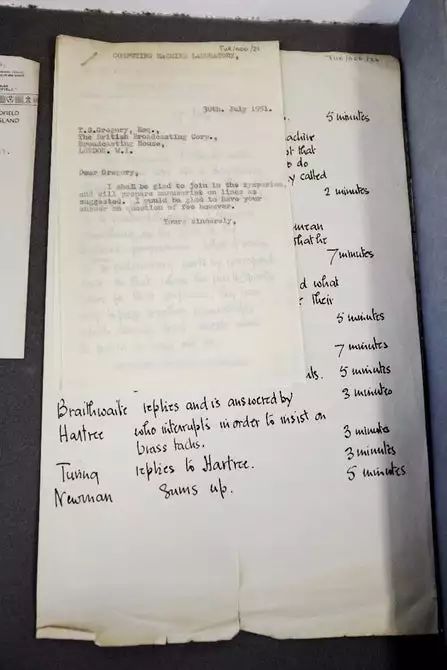 TUR/A00/21
COMPUTING MACHINE LABORATORY,
30th. July 1951.
T.S.Gregory, Esq.,
The British Broadcasting Corp.,
Broadcasting House,
LONDON. W.1.
Dear Gregory,
I shall be glad to join in the symposium,
and will prepare manuscript on lines as
suggested. I would be glad to have your
answer on question of fee however.
Yours sincerely,
5 minutes
achine
that
do
called
2 minutes
mean
that he
7 minutes
d what
their
5 minutes
7 minutes
5 minutes
3 minutes
Braithwaite replies and is answered by
Hartree who interrupts in order to insist on
brass tacks. 3 minutes
Turing replies to Hartree. 3 minutes
Newman Sums up. 5 minutes
FIELD
LAND